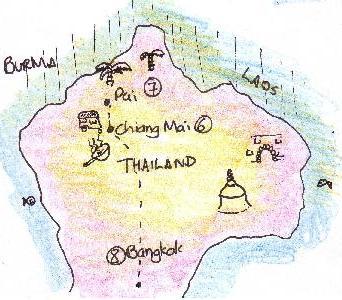 BURMA
LAOS
Pai ⑦
Chiang Mai ⑥
THAILAND
⑧ Bangkok